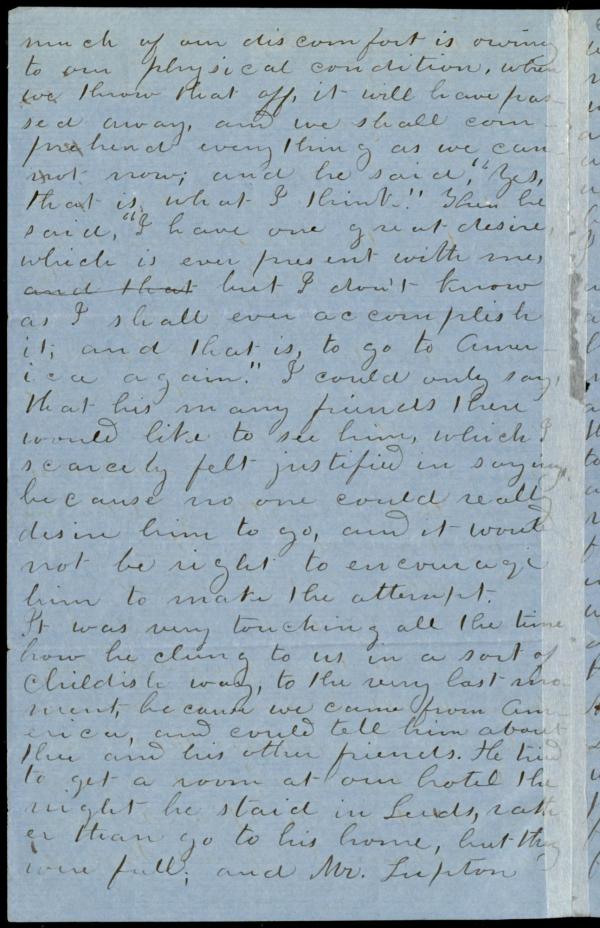 much of our discomfort is owing
to our physical condition, when
we throw that off, it will have pas-
sed away, and we shall com-
prehend everything as we can
not now; and he said, "Yes,
that is, what I think." Then he
said, "I have one great desire,
which is ever present with me,
and that but I don't know
as I shall ever accomplish
it; and that is, to go to Amer-
ica again." I could only say,
that his many friends there
would like to see him, which I
scarcely felt justified in saying,
because no one could really
desire him to go, and it would
not be right to encourage
him to make the attempt.
It was very touching all the time
how he clung to us in a sort of
childish way, to the very last mo-
ment, because we came from Am-
erica, and could tell him about
thee and his other friends. He tried
to get a room at our hotel the
night he staid in Leeds, rath-
er than go to his home, but they
were full; and Mr. Lupton